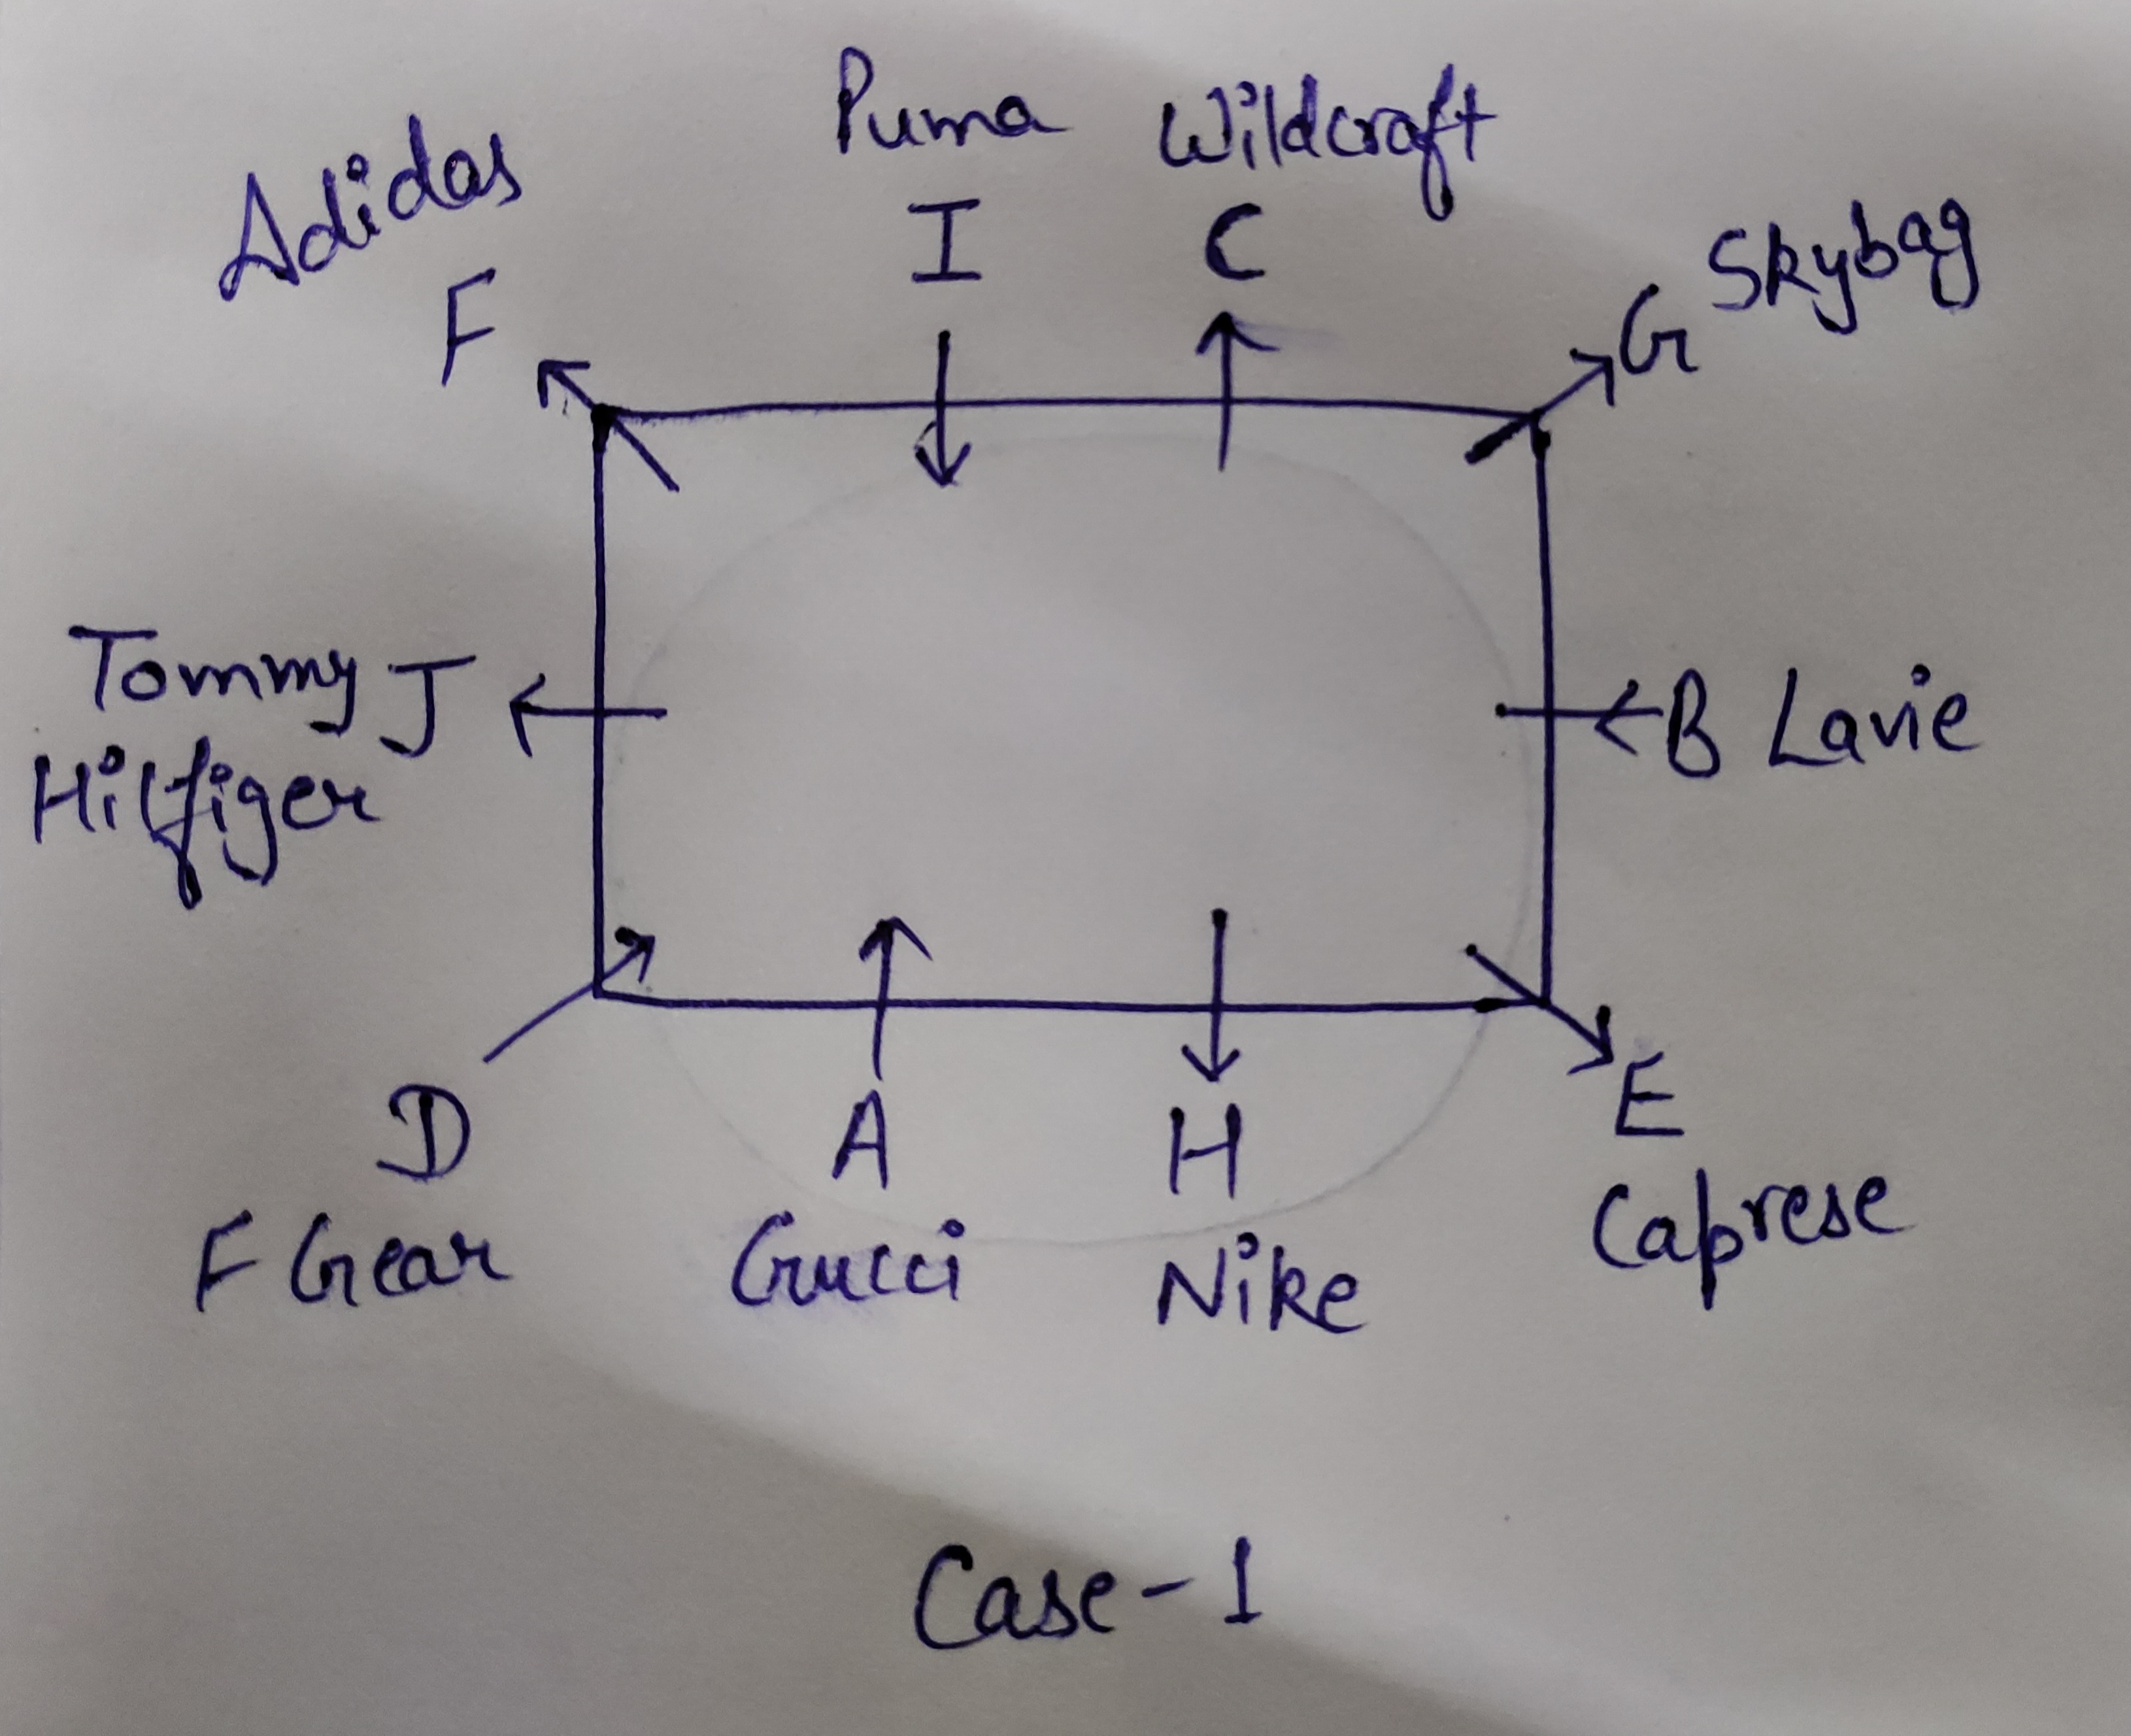 Puma Wildcraft
Adidas
I C
Skybag
F G
Tommy J B Lavie
Hilfiger
D A H E
F Gear Gucci Nike Caprese
Case-1